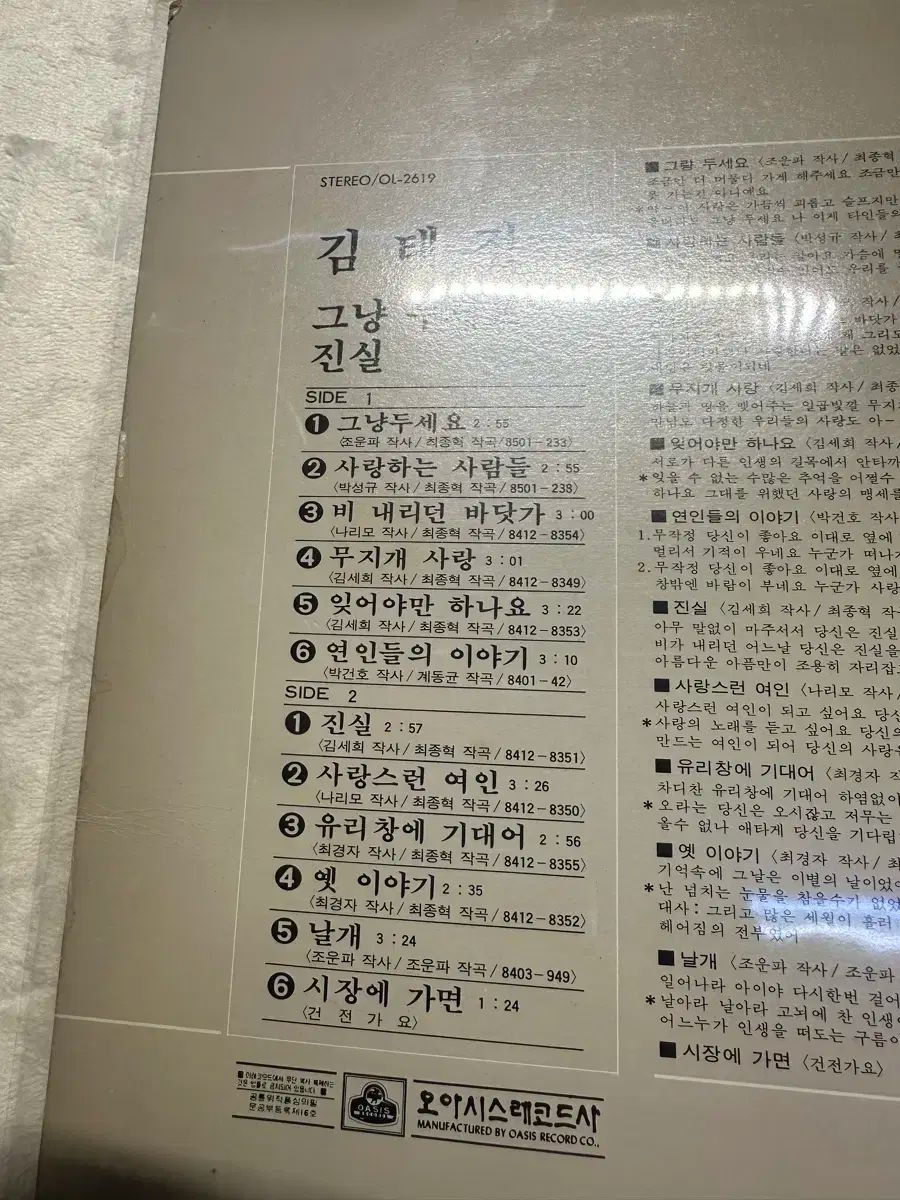 STEREO/OL-2619
김 태
그냥
진실
SIDE 1
❶ 그냥두세요 2:55
〈조운파 작사/최종혁 작곡/8501-233〉
❷ 사랑하는 사람들 2:55
〈박성규 작사/최종혁 작곡/8501-238〉
❸ 비 내리던 바닷가 3:00
〈나리모 작사/최종혁 작곡/8412-8354〉
❹ 무지개 사랑 3:01
〈김세희 작사/최종혁 작곡/8412-8349〉
❺ 잊어야만 하나요 3:22
〈김세희 작사/최종혁 작곡/8412-8353〉
❻ 연인들의 이야기 3:10
〈박건호 작사/계동균 작곡/8401-42〉
SIDE 2
❶ 진실 2:57
〈김세희 작사/최종혁 작곡/8412-8351〉
❷ 사랑스런 여인 3:26
〈나리모 작사/최종혁 작곡/8412-8350〉
❸ 유리창에 기대어 2:56
〈최경자 작사/최종혁 작곡/8412-8355〉
❹ 옛 이야기 2:35
〈최경자 작사/최종혁 작곡/8412-8352〉
❺ 날개 3:24
〈조운파 작사/조운파 작곡/8403-949〉
❻ 시장에 가면 1:24
〈건 전 가 요〉
■ 그냥 두세요 〈조운파 작사/최종혁
조금만 더 머물다 가게 해주세요 조금만
못 가는건 아니예요
사랑은 가끔씩 괴롭고 슬프지만
그냥 두세요 나 이제 타인들의
사랑하는 사람들 〈박성규 작사/최
가슴에
우리를
작사/
바닷가
그리도
없었
■ 무지개 사랑 〈김세희 작사/최종
하늘과 땅을 맺어주는 일곱빛깔 무지
만남도 다정한 우리들의 사랑도 아-
■ 잊어야만 하나요 〈김세희 작사/
서로가 다른 인생의 길목에서 안타까
*잊을 수 없는 수많은 추억을 어쩔수
하나요 그대를 위했던 사랑의 맹세를
■ 연인들의 이야기 〈박건호 작사
1.무작정 당신이 좋아요 이대로 옆에
멀리서 기적이 우네요 누군가 떠나가
2.무작정 당신이 좋아요 이대로 옆에
창밖엔 바람이 부네요 누군가 사랑
■ 진실 〈김세희 작사/최종혁 작곡
아무 말없이 마주서서 당신은 진실
비가 내리던 어느날 당신은 진실을
아름다운 아픔만이 조용히 자리잡고
■ 사랑스런 여인 〈나리모 작사/
사랑스런 여인이 되고 싶어요 당신
*사랑의 노래를 듣고 싶어요 당신의
만드는 여인이 되어 당신의 사랑
■ 유리창에 기대어 〈최경자 작
차디찬 유리창에 기대어 하염없이
* 오라는 당신은 오시잖고 저무는
올수 없나 애타게 당신을 기다립
■ 옛 이야기 〈최경자 작사/최
기억속에 그날은 이별의 날이었
* 난 넘치는 눈물을 참을수가 없었
대사: 그리고 많은 세월이 흘러
헤어짐의 전부였어
■ 날개 〈조운파 작사/조운파
일어나라 아이야 다시한번 걸어
* 날아라 날아라 고뇌에 찬 인생
어느누가 인생을 떠도는 구름이
■ 시장에 가면 〈건전가요〉
■ 이레코드에서 무단 복사 복제하는
것은 법률로 금지되어 있읍니다 ■
공륜위작품심의필
문공부등록제16호
OASIS
RECORD
오아시스레코드사
MANUFACTURED BY OASIS RECORD CO.,